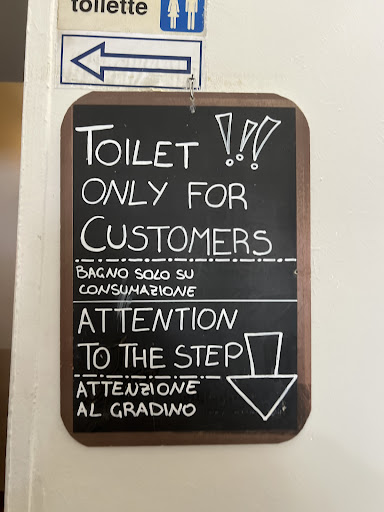 toilette
TOILET !!!
ONLY FOR
CUSTOMERS
BAGNO SOLO SU
CONSUMAZIONE
ATTENTION
TO THE STEP
ATTENZIONE
AL GRADINO